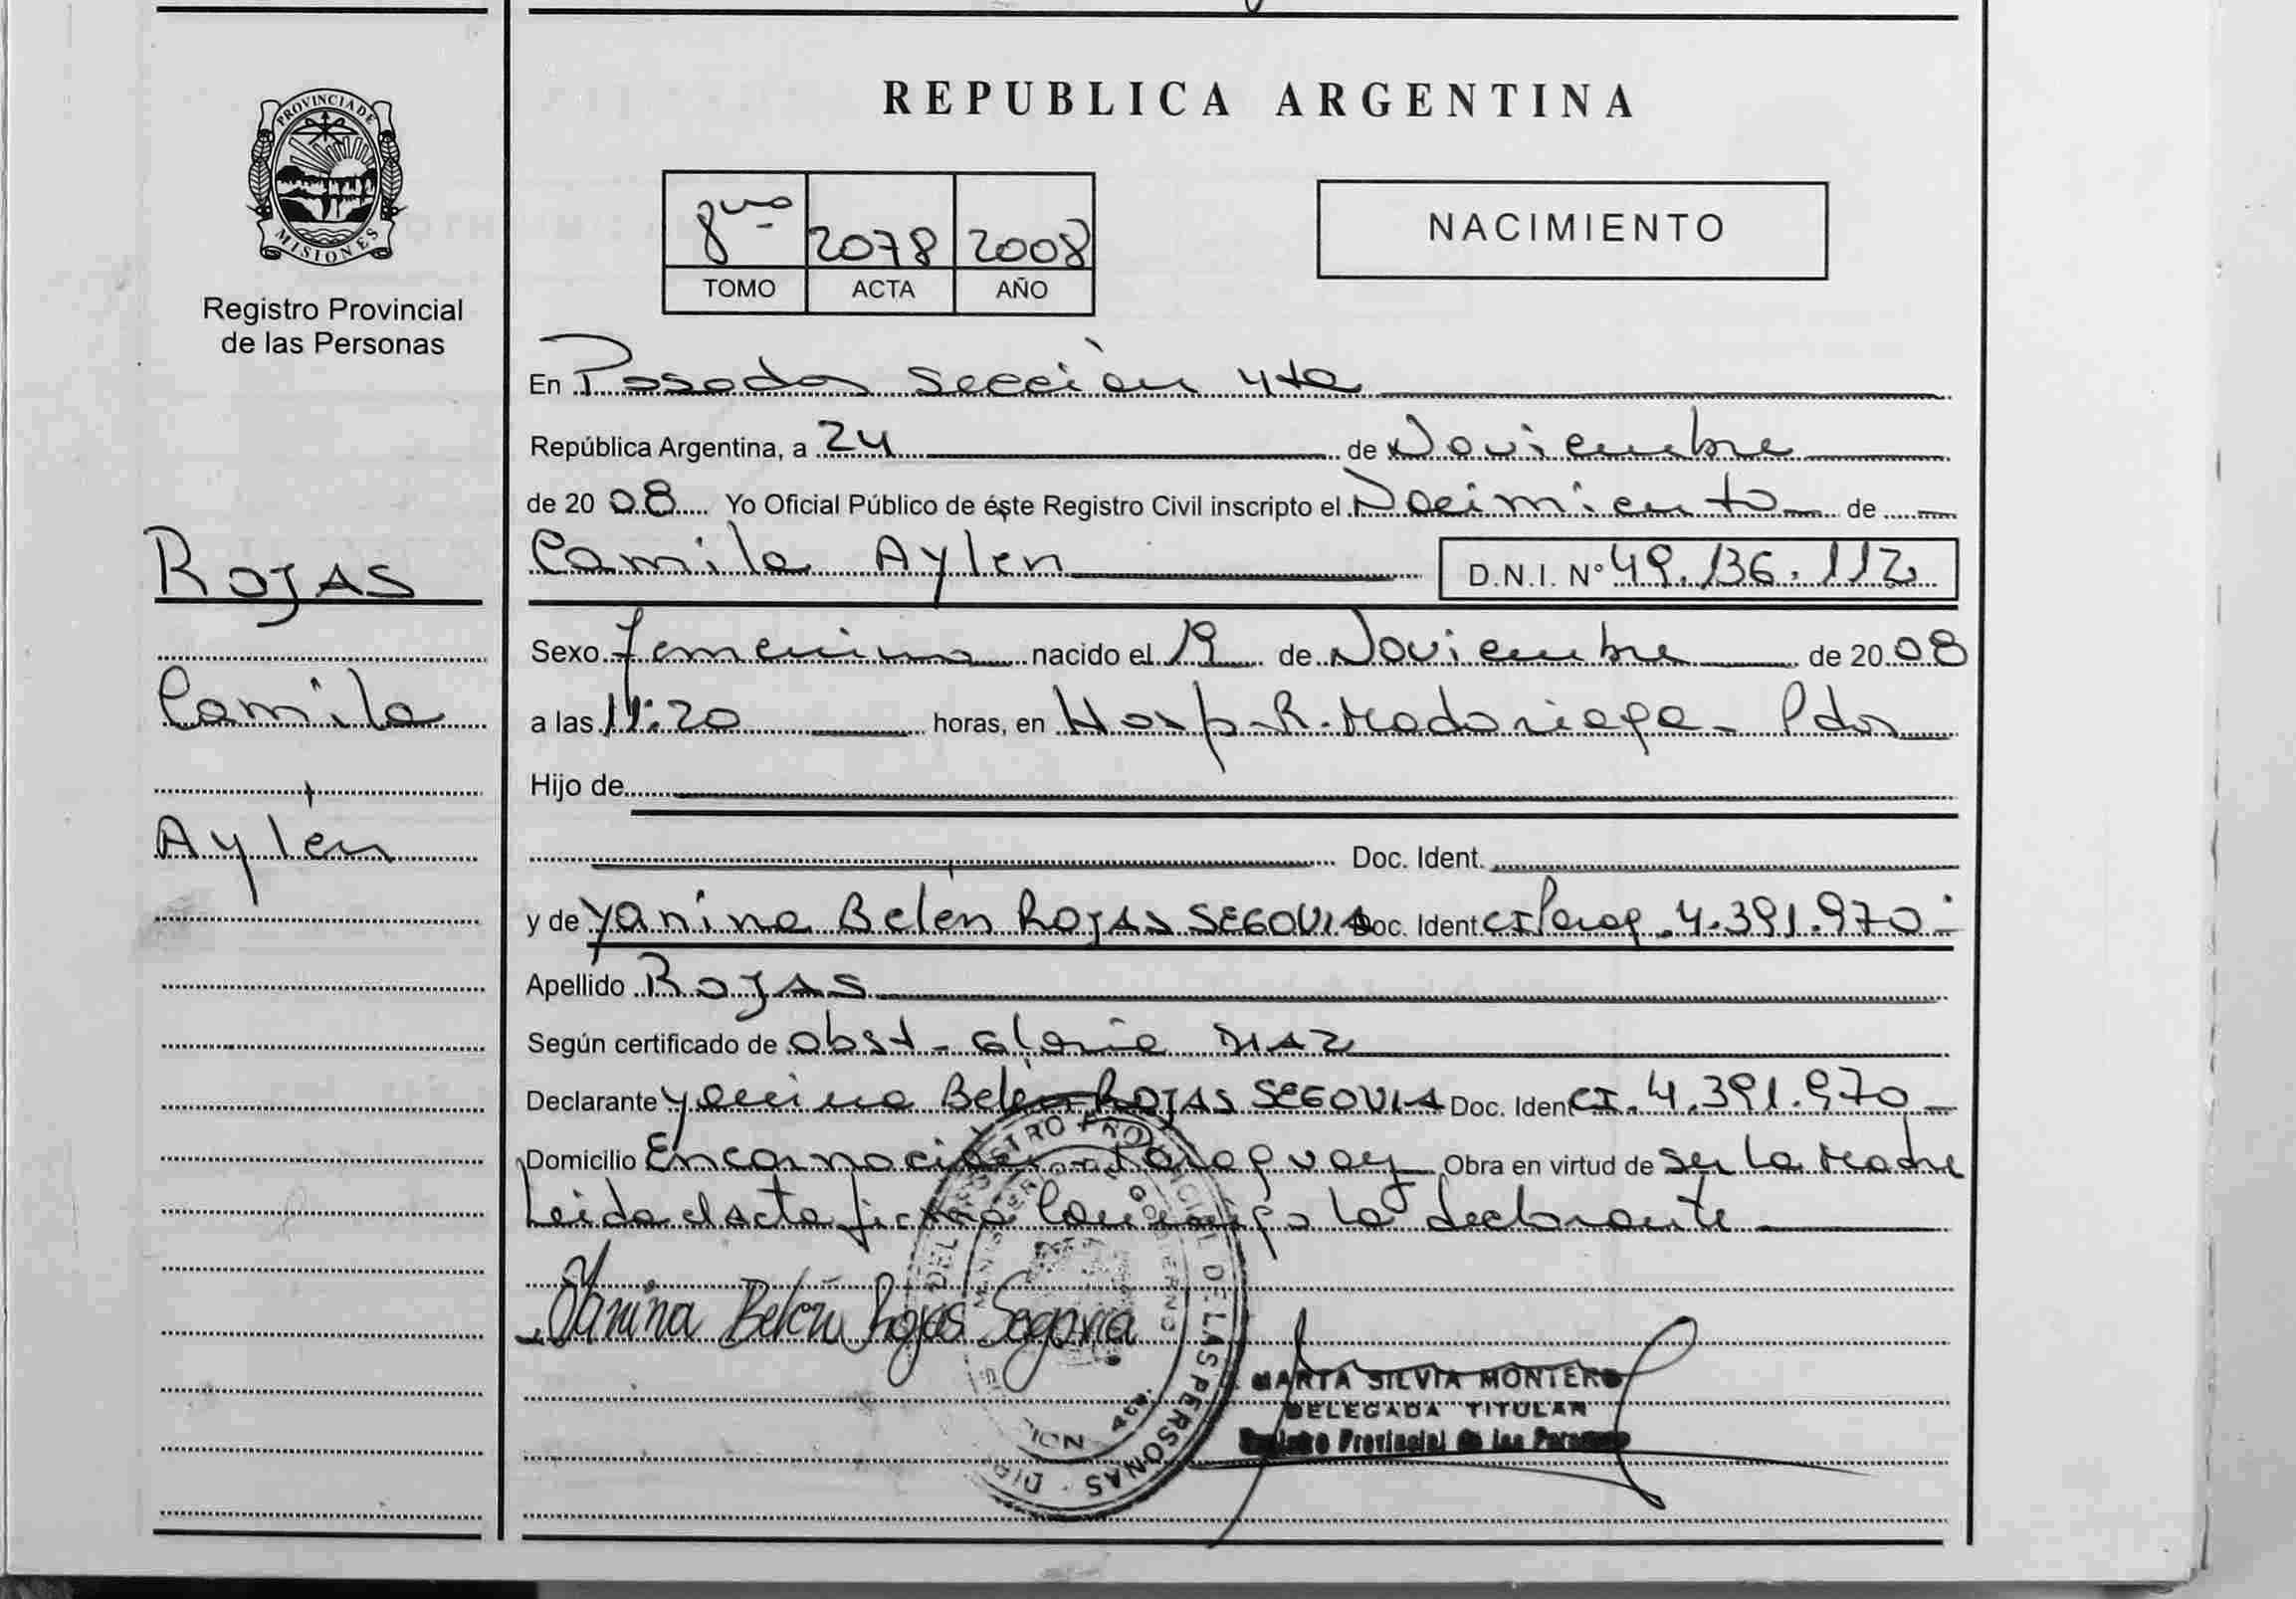 PROVINCIA DE
MISIONES
Registro Provincial
de las Personas
ROJAS
Camila
Aylén
REPUBLICA ARGENTINA
8vo 2078 2008
TOMO ACTA AÑO
NACIMIENTO
En Posadas Sección 4ta
República Argentina, a 24 de Noviembre
de 2008 Yo Oficial Público de éste Registro Civil inscripto el Nacimiento de
Camila Aylen D.N.I. N° 49.136.112
Sexo Femenino nacido el 19 de Noviembre de 2008
a las 11:20 horas, en Hosp. R. Madariaga - Pdas
Hijo de
Doc. Ident.
y de Yanina Belén ROJAS SEGOVIA Doc. Ident CI Parag. 4.391.970
Apellido ROJAS
Según certificado de Obst. Gloria DIAZ
Declarante Yanina Belén ROJAS SEGOVIA Doc. Ident CI. 4.391.970
Domicilio Encarnación - Paraguay Obra en virtud de ser la madre
Leida el acta firma conmigo la declarante
Yanina Belén Rojas Segovia
REGISTRO PROVINCIAL DE LAS PERSONAS
MARTA SILVIA MONTERO
DELEGADA TITULAR
Registro Provincial de las Personas